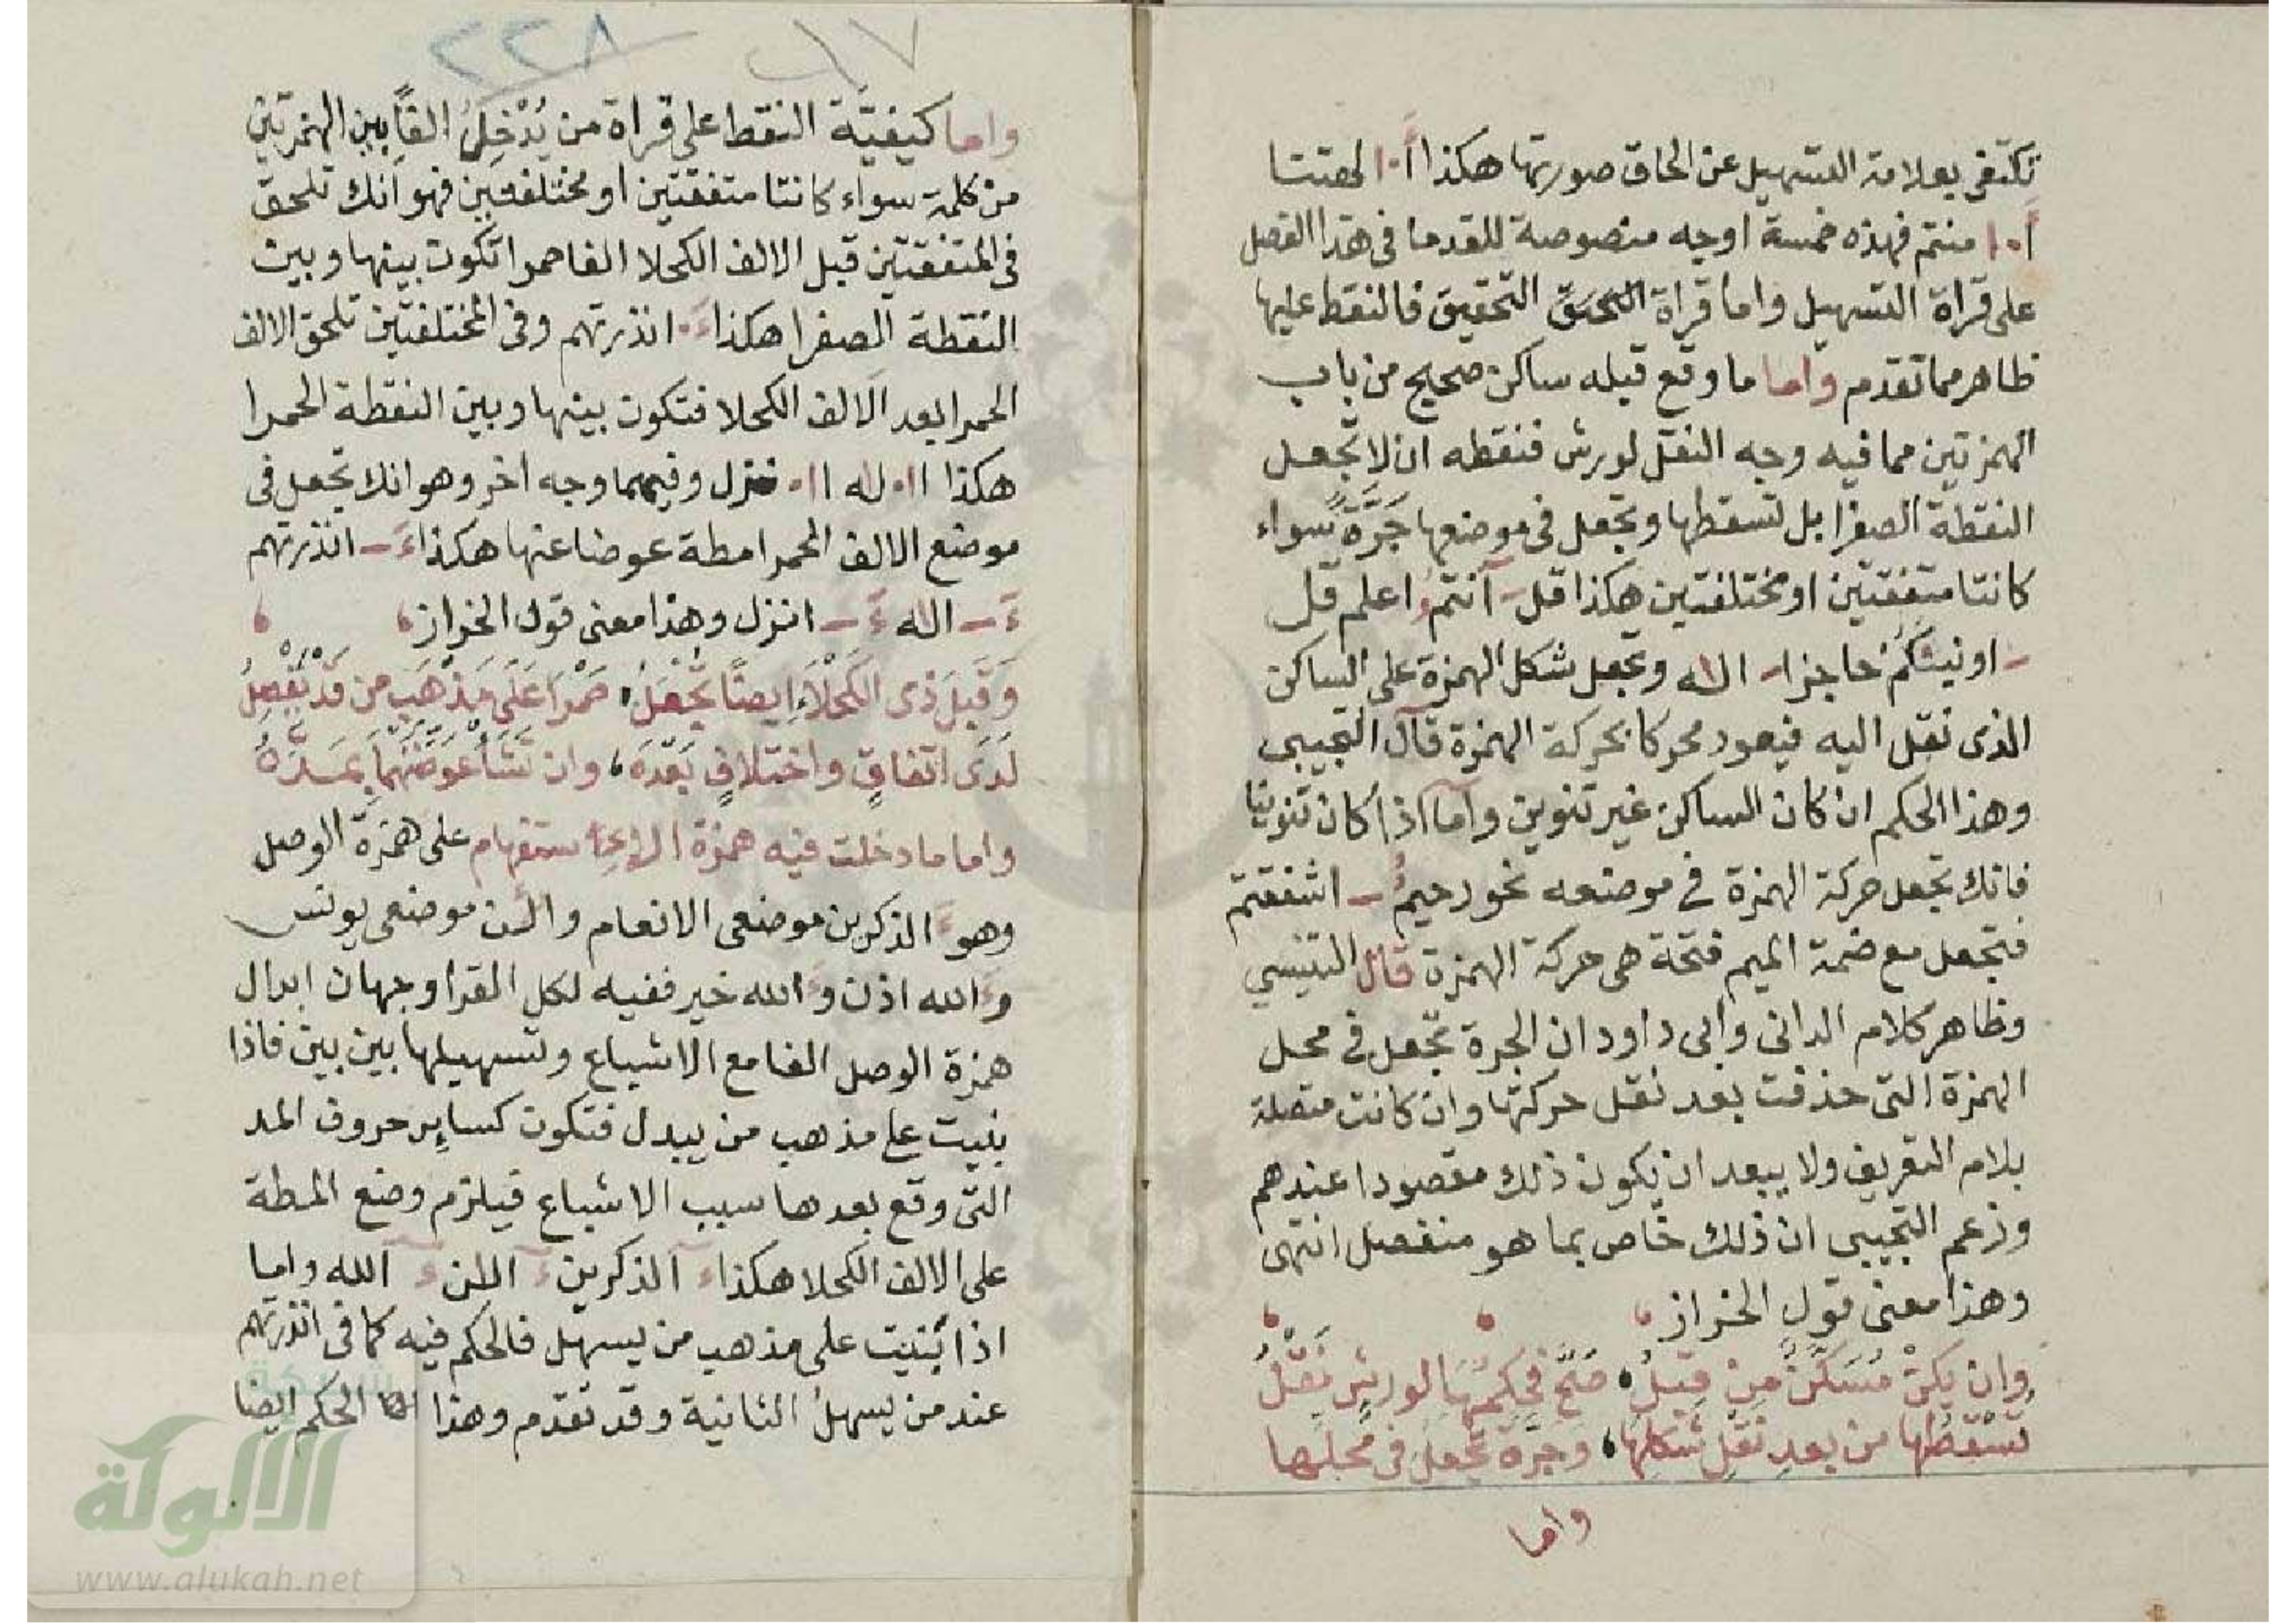 تكتفى بعلامة التسهيل عن الحاق صورتها هكذا أ۰ا لهتنا
أ۰ا منتم فهذه خمسة اوجه منصوصة للقدما فى هذا الفصل
على قراة التسهيل واما قراة التحقيق فالنقط عليها
ظاهر مما تقدم واما ما وقع قبله ساكن صحيح من باب
الهمزتين مما فيه وجه النقل لورش فنقطه ان لا تجعل
النقطة الصفرا بل تسقطها وتجعل فى موضعها جَرَّةً سواء
كانتا متفقتين او مختلفتين هكذا قل ـ آنتمُ اعلم قل
ـ اونبئكم حاجزا ـ اله وتجعل شكل الهمزة على الساكن
الذى نقل اليه فيعود محركا بحركة الهمزة قال التجيبى
وهذا الحكم ان كان الساكن غير تنوين واما اذا كان تنوينا
فانك تجعل حركة الهمزة فى موضعه نحو رحيمُ ـ اشفقتم
فتجعل مع ضمة الميم فتحة هى حركة الهمزة قال التنيسي
وظاهر كلام الدانى وابى داود ان الجرة تجعل فى محل
الهمزة التى حذفت بعد نقل حركتها وان كانت متصلة
بلام التعريف ولا يبعد ان يكون ذلك مقصودا عندهم
وزعم التجيبى ان ذلك خاص بما هو منفصل انتهى
وهذا معنى قول الخراز
وان يكنْ مُسَكَّنٌ مِنْ قبلُ صَحَّ فحكمها لورش نَقْلُ
تُسْقطُها من بعد نَقْلِ شَكلِها وجَرَّةً تجعلُ فى محلها
واما
٦٧ ٢٢٨
واما كيفيَّة النقط على قراة من يُدْخِلُ الفاً بين الهمزتين
من كلمة سواء كانتا متفقتين او مختلفتين فهو انك تلحق
فى المتفقتين قبل الالف الكحلا الفا حمرا تكون بينها وبين
النقطة الصفرا هكذا ءَ۰ انذرتهم وفى المختلفتين تلحق الالف
الحمرا بعد الالف الكحلا فتكون بينها وبين النقطة الحمرا
هكذا اا۰ له اا۰ نزل وفيهما وجه اخر وهو انك تجعل فى
موضع الالف الحمرا مطة عوضا عنها هكذا ءَـ انذرتهم
ءَـ اله ءَـ انزل وهذا معنى قول الخراز
وَقَبلَ ذى الكَحْلَاءِ ايضًا تُجْعَلُ حَمْرَا عَلَى مَذْهَبِ من قَدْ يَفْصِلُ
لَدَى اتفاقٍ واختلافٍ بَعْدَهُ وان تَشَأْ عَوَّضْتَهُما بِمَدَّهْ
واما ما دخلت فيه همزة الاستفهام على همزة الوصل
وهو ءَالذكرين موضعى الانعام والئن موضعى يونس
وءَالله اذن وءَالله خير ففيه لكل القرا وجهان ابدال
همزة الوصل الفا مع الاشباع وتسهيلها بين بين فاذا
بنيت على مذهب من يبدل فتكون كساير حروف المد
التى وقع بعدها سبب الاشباع فيلزم وضع المطة
على الالف الكحلا هكذا ءَ آلذكرين ءَ آلـن ءَ آلله واما
اذا بنيت على مذهب من يسهل فالحكم فيه كما فى انذرتهم
عند من يسهل الثانية وقد تقدم وهذا الحكم ايضا
شبكة
الألوكة
www.alukah.net